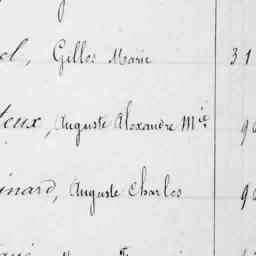 el, Gilles Marie 31
teux, Auguste Alexandre Mie
inard, Auguste Charles